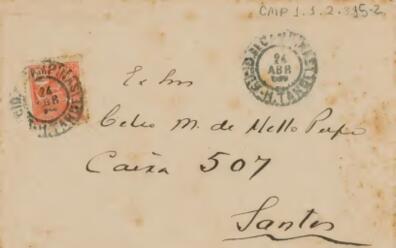 CMP 1.1.2.315-2
24
ABR
24
ABR
Exmo
Celso M. de Mello Pupo
Caixa 507
Santos